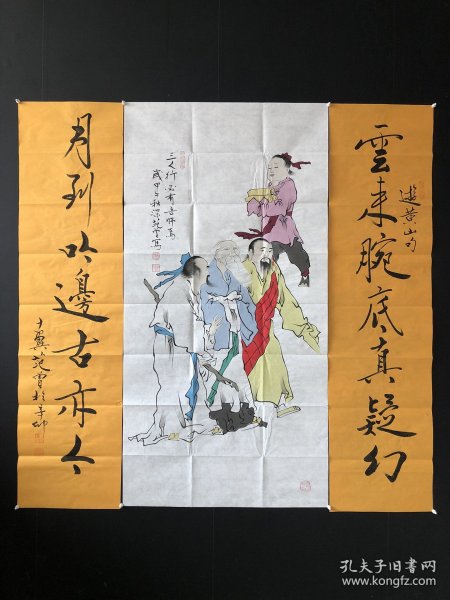 雲来腕底真疑幻
遊黄山句
三人行必有吾師焉
月到吟邊古亦今
十翼范曾
孔夫子旧书网
www.kongfz.com